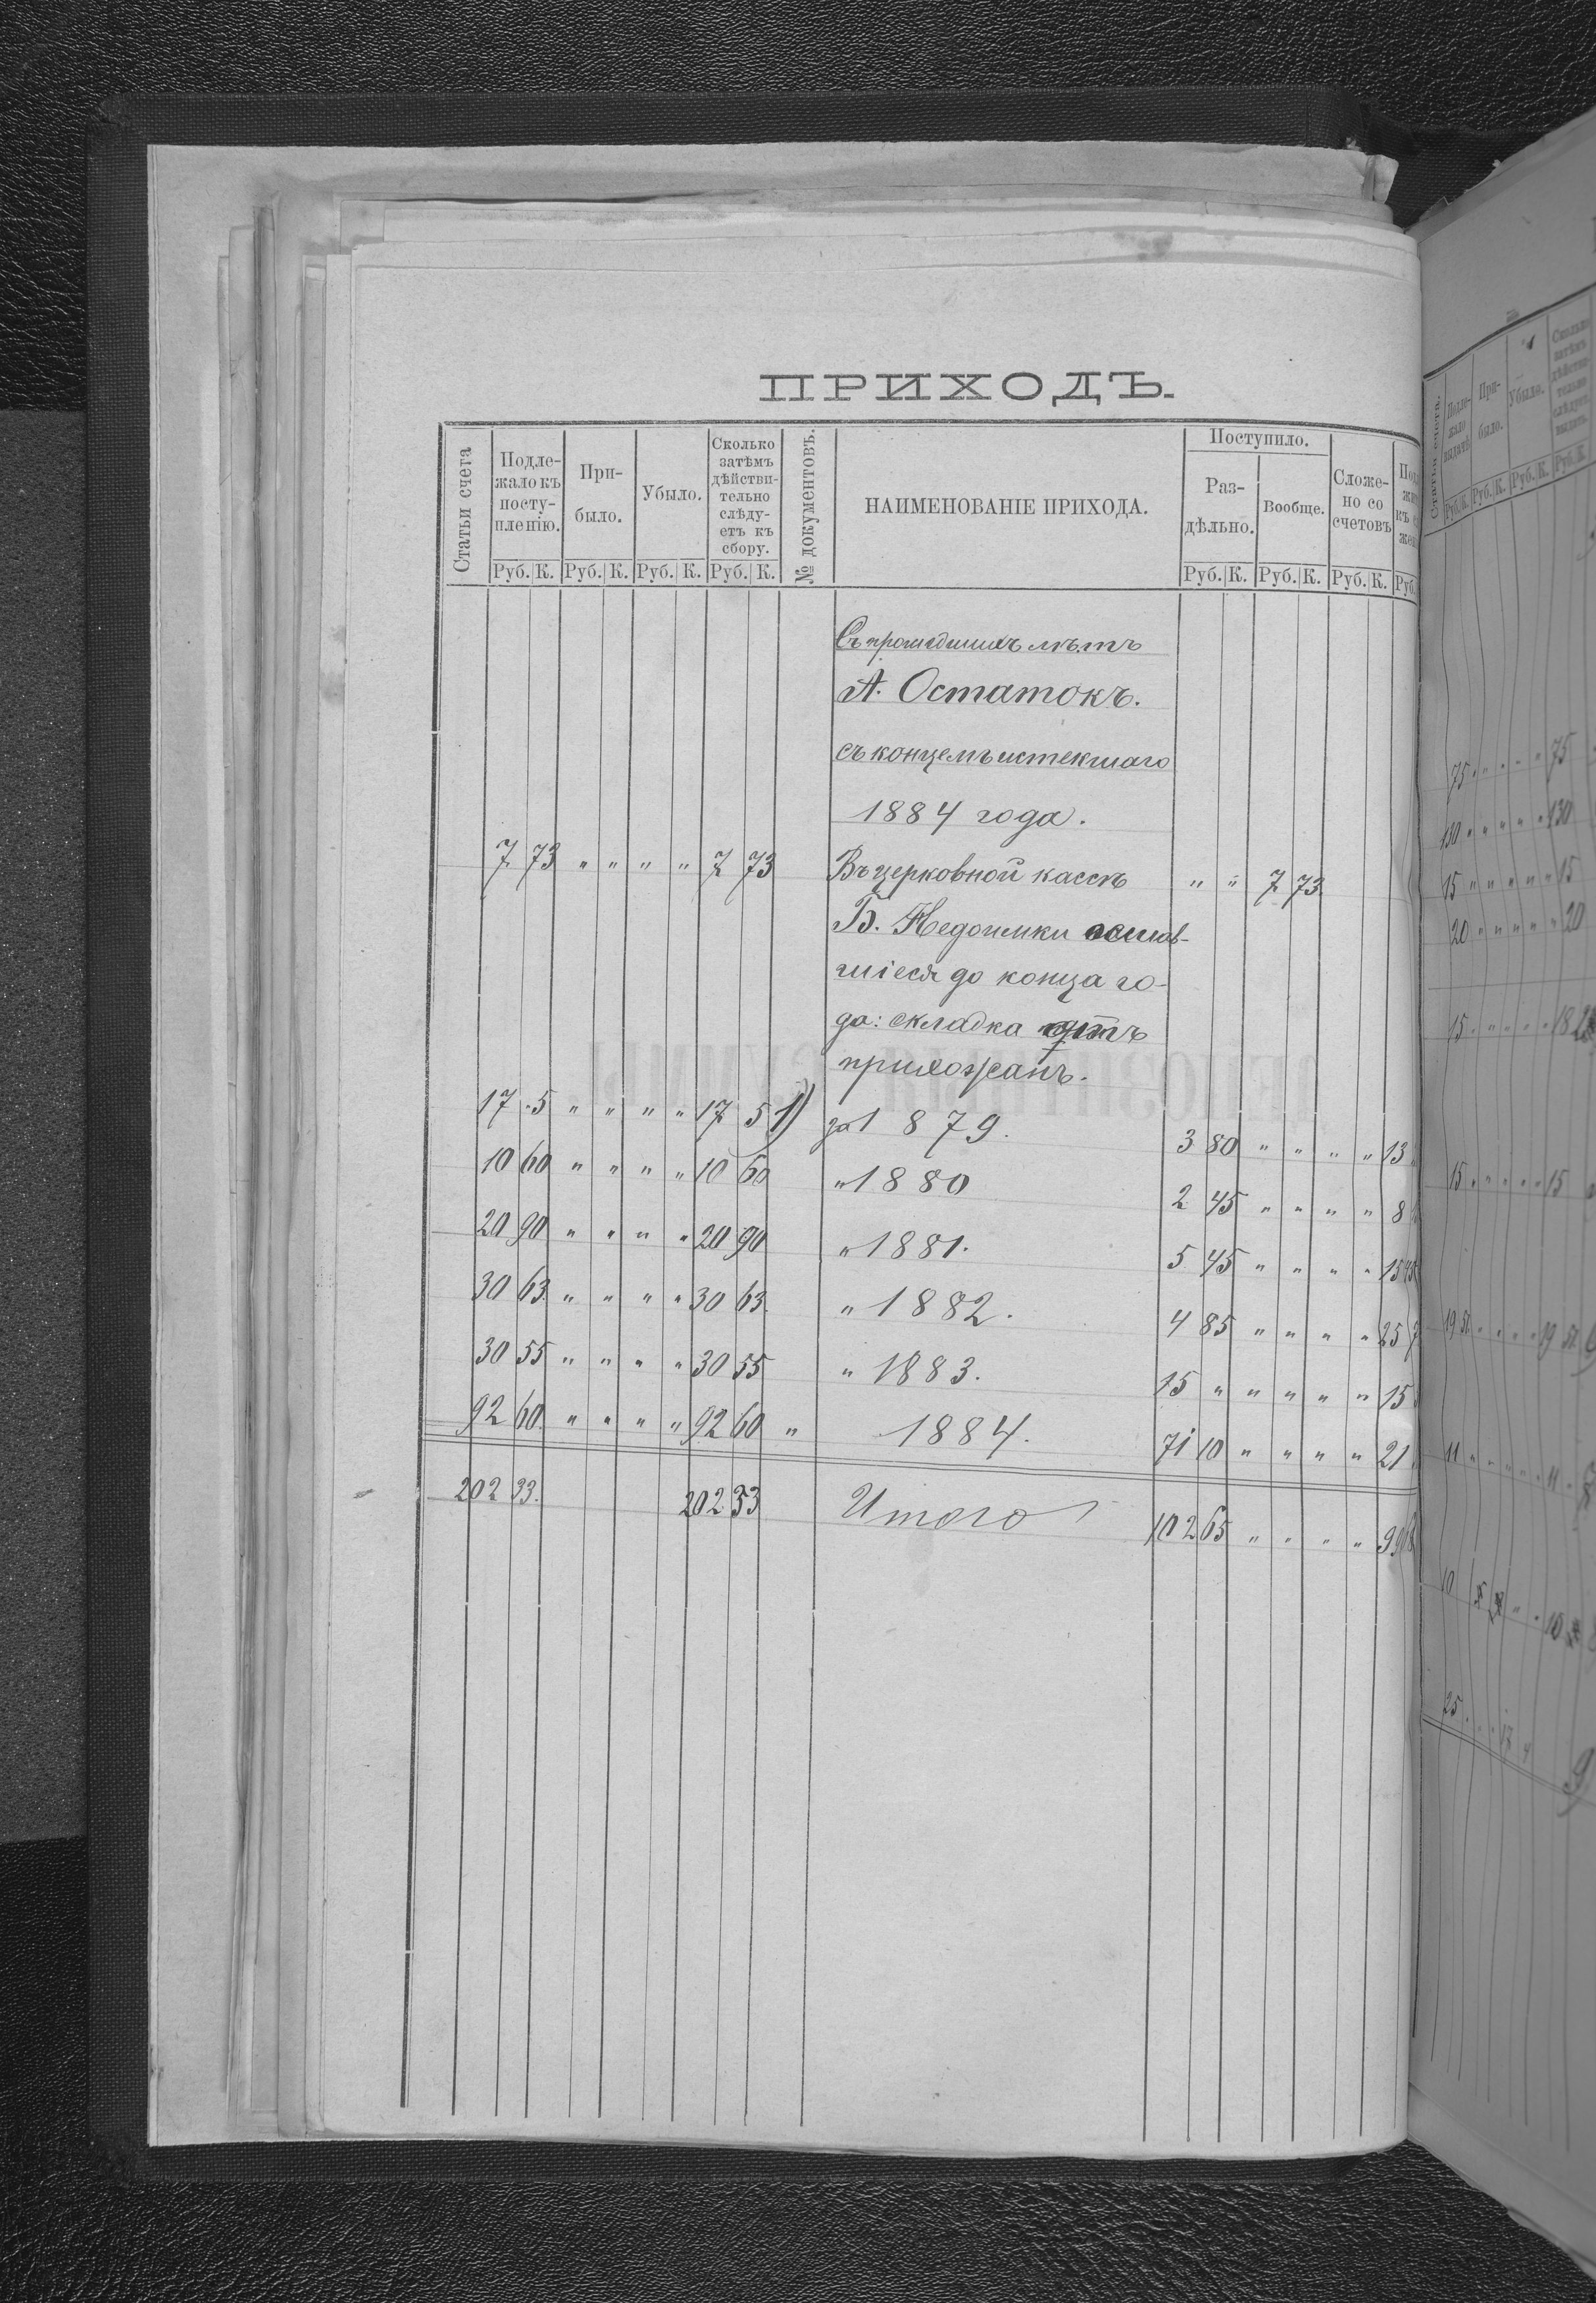 ПРИХОДЪ.
Статьи счета
Подле-
жало къ
посту-
пленію.
При-
было.
Убыло.
Сколько
затѣмъ
дѣйстви-
тельно
слѣду-
етъ къ
сбору.
№ документовъ.
НАИМЕНОВАНІЕ ПРИХОДА.
Поступило.
Раз-
дѣльно.
Вообще.
Сложе-
но со
счетовъ
Руб. К. Руб. К. Руб. К. Руб. К. Руб. К. Руб. К. Руб. К. Руб.
Съ прошедшихъ лѣтъ
А. Остатокъ.
съ концемъ истекшаго
1884 года.
7 73 " " " " 7 73 Въ церковной кассѣ " " 7 73
Б. Недоимки остав-
шіеся до конца го-
да: складка отъ
прихожанъ.
17 5 " " " " 17 5 1) за 1879. 3 80 " " " " 13
10 60 " " " " 10 60 " 1880 2 45 " " " " 8
20 90 " " " " 20 90 " 1881. 5 45 " " " " 15 45
30 63 " " " " 30 63 " 1882. 4 85 " " " " 25 7
30 55 " " " " 30 55 " 1883. 15 " " " " " 15
92 60 " " " " 92 60 " 1884. 71 10 " " " " 21
202 33. 202 33 Итого 102 65 " " " " 99
Статьи счета.
Подле-
жало
выдачѣ
При-
было.
Убыло.
Сколько
затѣмъ
дѣйстви-
тельно
слѣдуетъ
Руб. К. Руб. К. Руб. К. Руб. К.
75 " " " " " 75
130 " " " " " 130
15 " " " " " 15
20 " " " " " 20
15 " " " " " 15